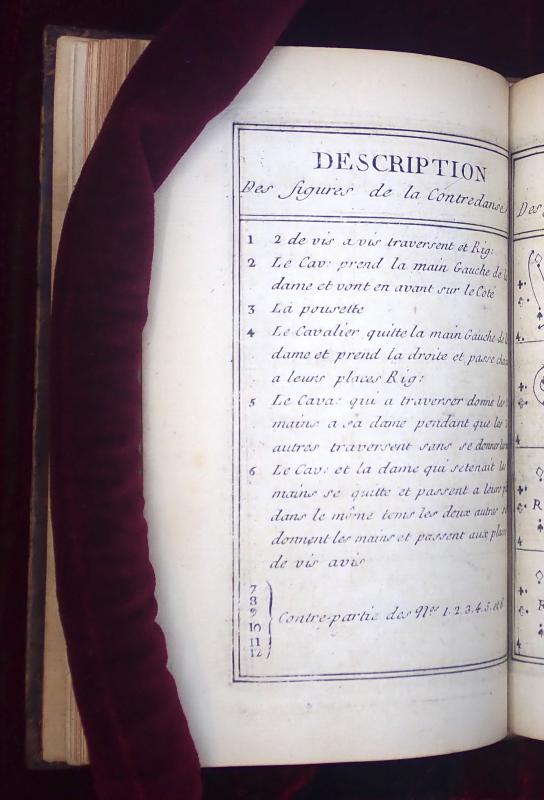 DESCRIPTION
Des figures de la Contredanse
1 2 de vis a vis traversent et Rig:
2 Le Cav: prend la main Gauche de
dame et vont en avant sur le Coté
3 La pousette
4 Le Cavalier quitte la main Gauche de
dame et prend la droite et passe
a leurs places Rig:
5 Le Cava: qui a traverser donne les
mains a sa dame pendant que les
autres traversent sans se donner
6 Le Cav: et la dame qui setenait les
mains se quitte et passent a leurs
dans le même tems les deux autres
donnent les mains et passent aux
de vis avis
7
8
9
10
11
12
Contre-partie des Nos 1. 2. 3. 4. 5. et 6
Des
4.
4
R
4
R
4